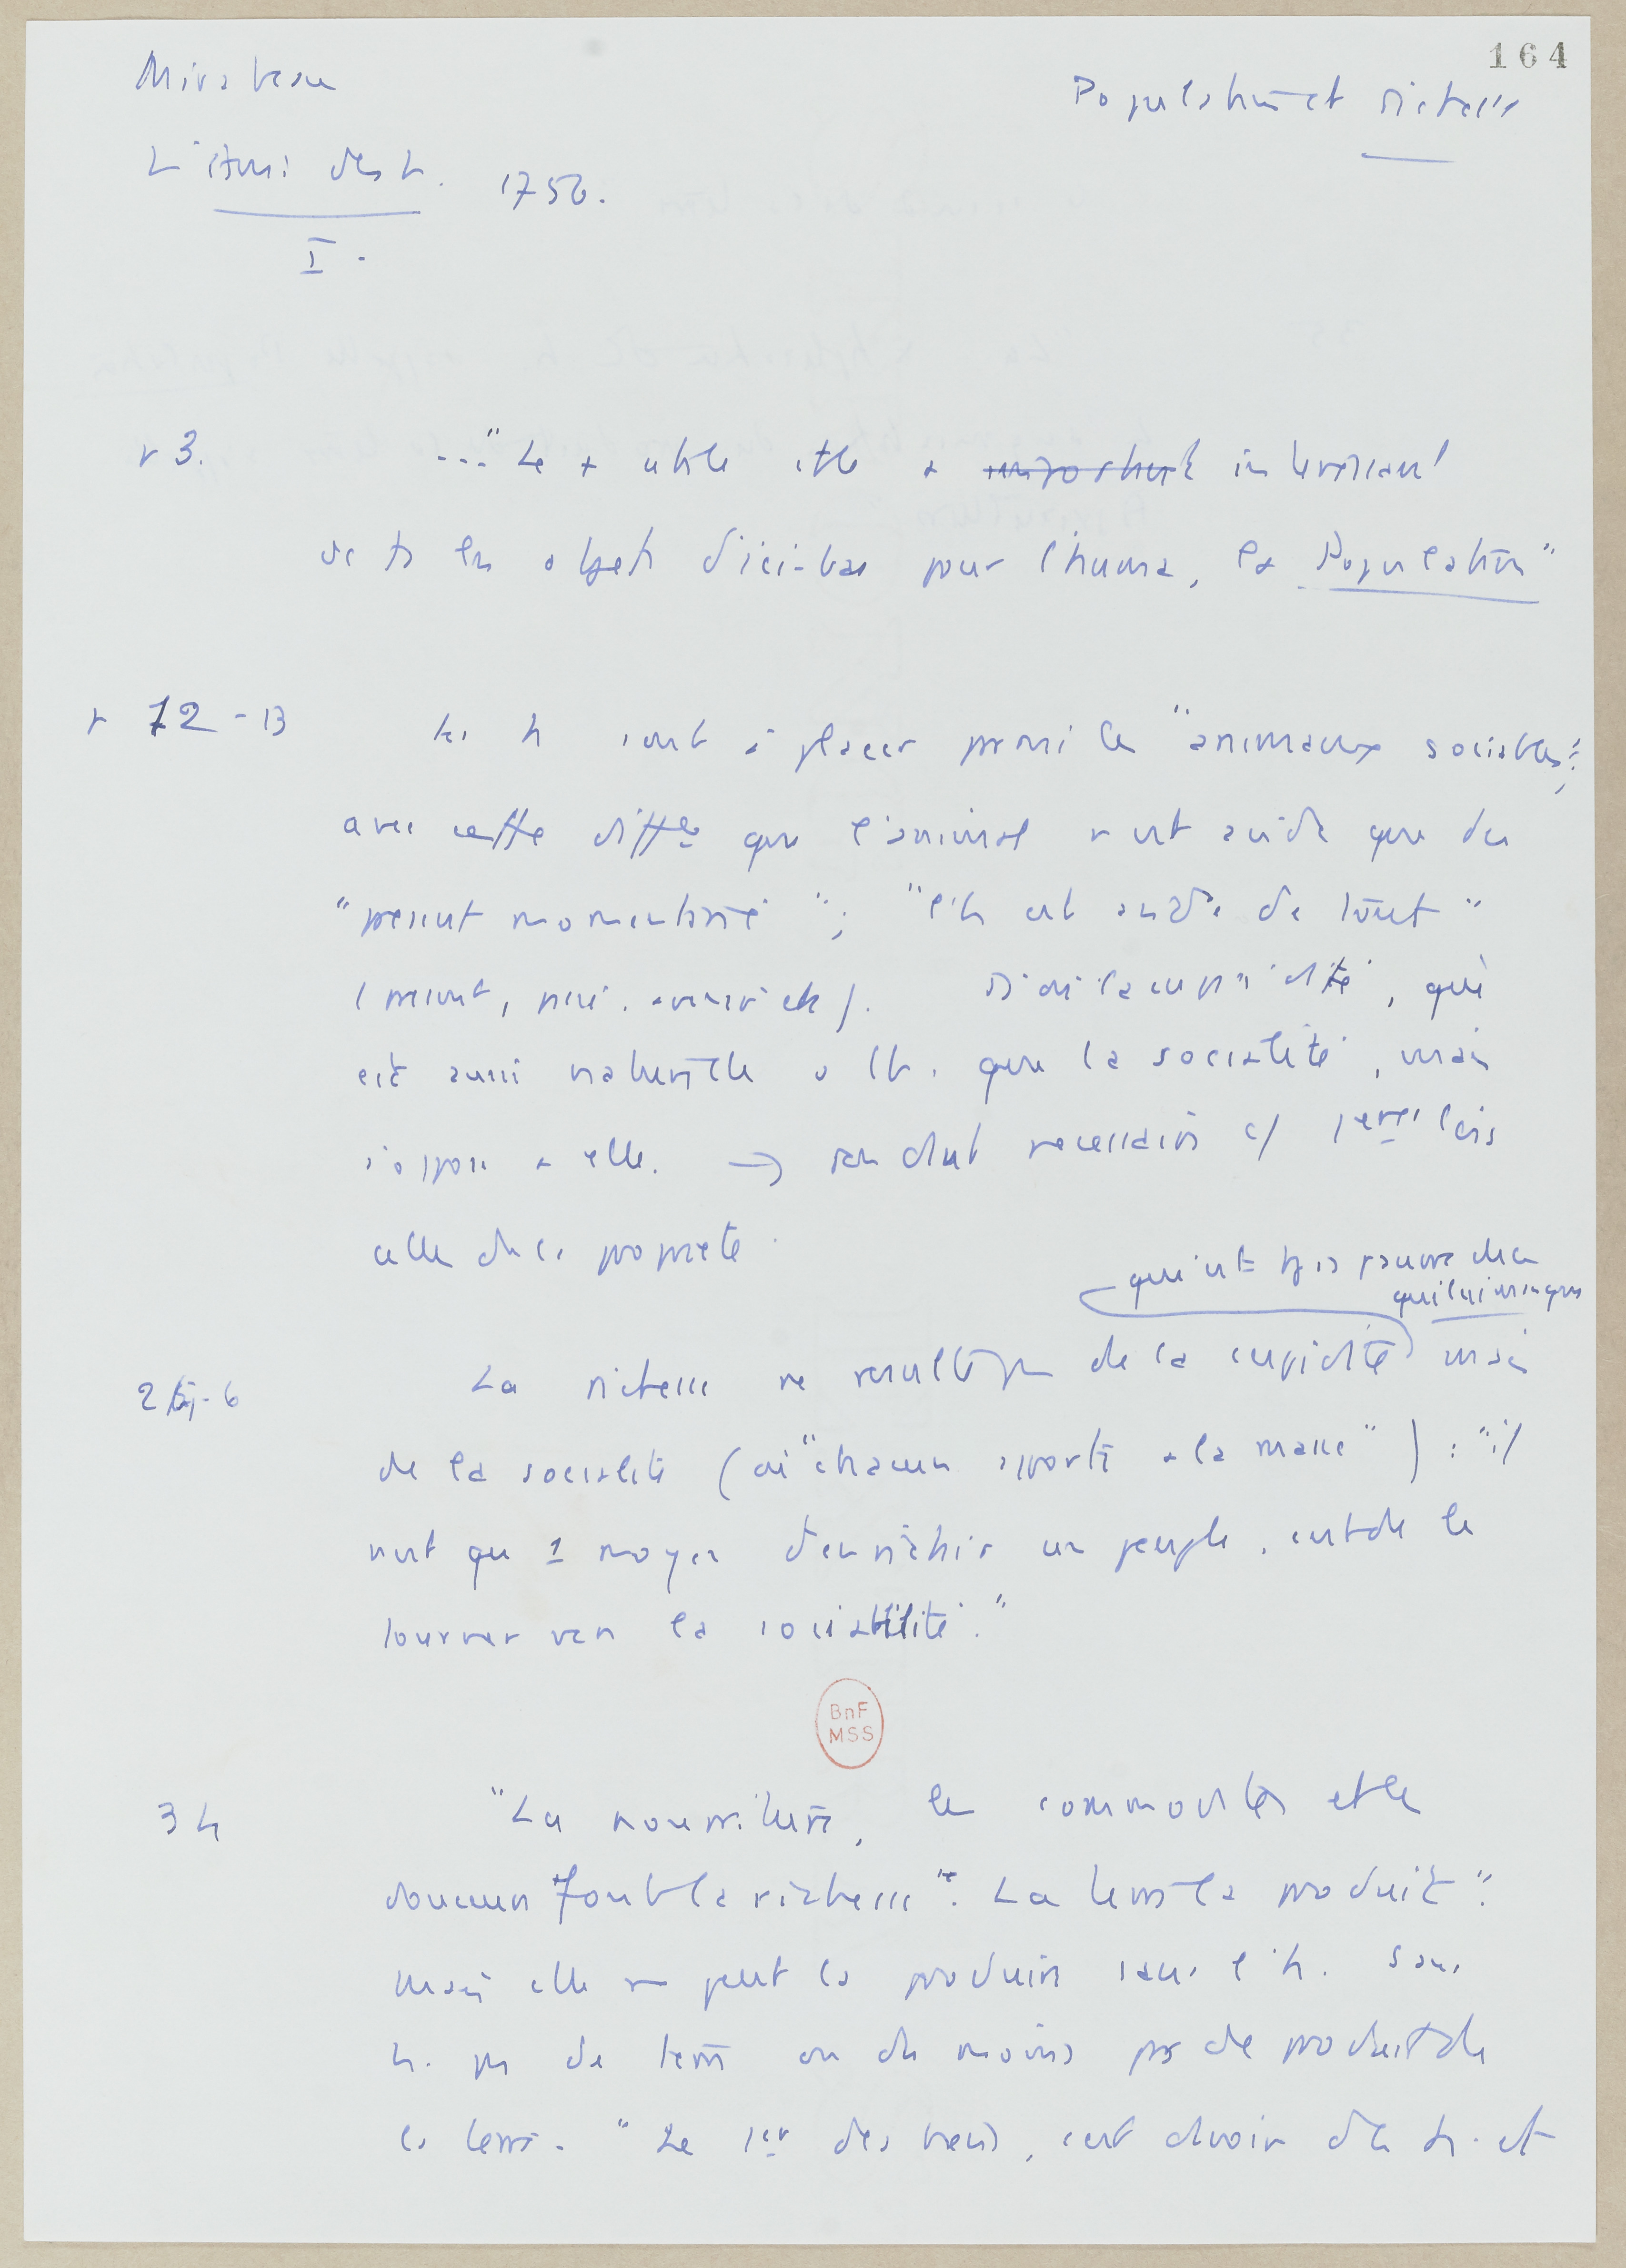 164
Mirabeau
Population et richesse
L'Ami des h. 1756.
I.
p 3. ..."Le + utile et le + important intéressant
de ts les objets d'ici-bas pour l'huma, la Population"
p 12-13 Les h sont à placer parmi les "animaux sociables";
avec cette diffce que l'animal n'est avide que du
"présent momentané"; "l'h est avide de tout"
(présent, passé, avenir etc). D'où la cupidité, qui
est aussi naturelle à l'h. que la sociabilité, mais
s'oppose à elle. → rendent nécessaires c/ 1ères lois
celle de la propriété.
qui lui manque
25-6 La richesse ne résulte pas de la cupidité mais
de la sociabilité (où "chacun apporte à la masse") : "il
n'est qu 1 moyen d'enrichir un peuple, c'est de le
tourner vers la sociabilité."
BnF
MSS
34 "La nourriture, les commodités et les
douceurs font la richesse". "La terre la produit".
Mais elle ne peut la produire sans l'h. Sans
h. pas de terre ou du moins pas de produit de
la terre. "Le 1er des biens, c'est d'avoir des h. et